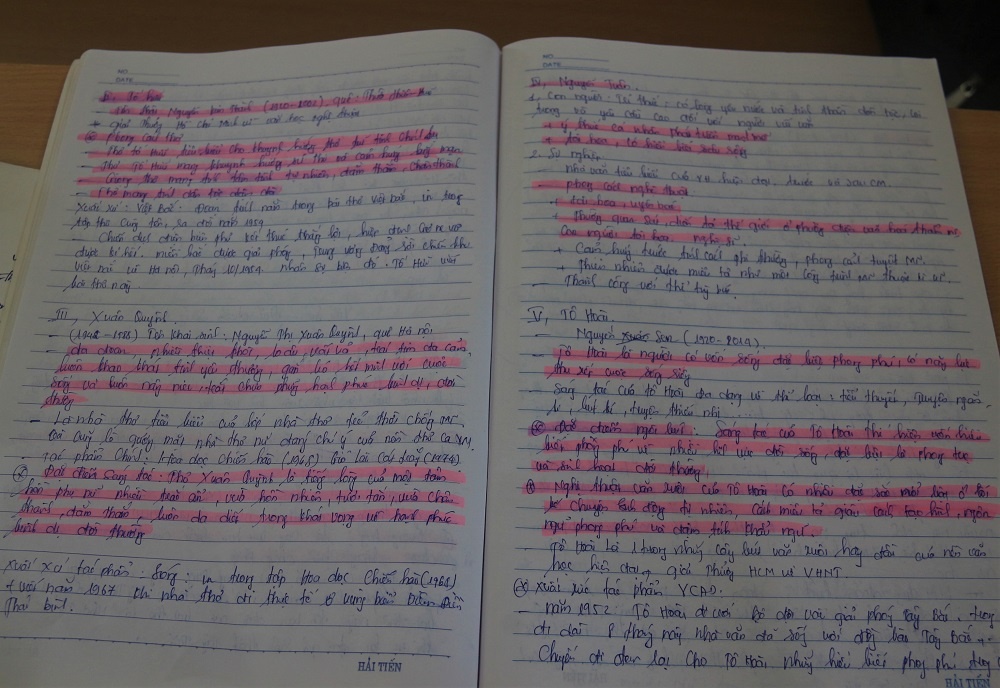 NO
DATE
II, Tố Hữu
- tên thật Nguyễn Kim Thành (1920-2002), quê: Thừa Thiên Huế
+ giải thưởng Hồ Chí Minh về văn học nghệ thuật
Phong cách thơ
- Thơ tố Hữu tiêu biểu cho khuynh hướng thơ trữ tình chính trị
- Thơ Tố Hữu mang khuynh hướng sử thi và cảm hứng lãng mạn
- Giọng thơ mang tính tâm tình tự nhiên, đằm thắm chân thành
- Thơ mang tính dân tộc đậm đà
Xuất xứ: Việt Bắc: Đoạn trích nằm trong bài thơ Việt Bắc, in trong
tập thơ cùng tên, ra đời năm 1954.
- Chiến dịch điện biên phủ kết thúc thắng lợi, hiệp định
được kí kết. miền bắc được giải phóng, trung ương Đảng rời chiến khu
việt bắc về Hà nội, Tháng 10/1954. nhân sự kiện đó. Tố Hữu viết
bài thơ này
III, Xuân Quỳnh.
- (1942-1988) Tên khai sinh: Nguyễn Thị Xuân Quỳnh, quê Hà nội
- đa đoan, nhiều thua thiệt, lo âu, vất vả, trái tim đa cảm,
luôn khao khát tình yêu thương, gắn bó hết mình với cuộc
sống và luôn nâng niu, chắt chiu từng hạnh phúc bình dị, đời
thường
- Là nhà thơ tiêu biểu của lớp nhà thơ trẻ thời chống mĩ
cũng là gương mặt nhà thơ nữ đáng chú ý của nền thơ ca VN.
tác phẩm chính: Hoa dọc chiến hào (1968) Gió lào cát trắng (1974)
Đặc điểm sáng tác: Thơ Xuân Quỳnh là tiếng lòng của một tâm
hồn phụ nữ nhiều trắc ẩn, vừa hồn nhiên, tươi tắn, vừa chân
thành, đằm thắm, luôn da diết trong khát vọng về hạnh phúc
bình dị đời thường
xuất xứ tác phẩm: Sóng: in trong tập Hoa dọc Chiến hào (1968)
+ viết năm 1967 khi nhà thơ đi thực tế ở vùng biển Diêm Điền
Thái bình.
HẢI TIẾN
NO
DATE
IV, Nguyễn Tuân.
1, Con người: Trí thức: có lòng yêu nước và tinh thần dân tộc,
+ ý thức cá nhân phát triển mạnh mẽ
+ tài hoa, có hiểu biết sâu rộng
2. Sự nghiệp
- nhà văn tiêu biểu của VH hiện đại trước và sau CM.
- phong cách nghệ thuật
+ tài hoa, uyên bác
+
con người tài hoa, nghệ sĩ.
+ Cảm hứng trước tính cách phi thường, phong cảnh tuyệt mĩ.
+ Thiên nhiên được miêu tả như một công trình mĩ thuật kì vĩ.
- Thành công với thể tuỳ bút.
V, Tô Hoài.
Nguyễn Sen (1920-2014).
- Tô Hoài là người có vốn sống đặc biệt phong phú,
- Sáng tác của Tô Hoài đa dạng về thể loại: tiểu thuyết, truyện ngắn,
kí, bút kí, truyện thiếu nhi ....
Đặc điểm nổi bật: Sáng tác của Tô Hoài thể hiện vốn hiểu
biết phong phú về nhiều lĩnh vực đời sống, đặc biệt là phong tục
và sinh hoạt đời thường.
Nghệ thuật văn xuôi của Tô Hoài có nhiều đặc sắc nổi bật ở lối
kể chuyện sinh động tự nhiên, cách miêu tả giàu chất tạo hình, ngôn
ngữ phong phú và đậm tính khẩu ngữ.
Tô Hoài là 1 trong những cây bút văn xuôi hàng đầu của nền văn
học hiện đại + giải thưởng HCM về VHNT.
xuất xứ tác phẩm VCAP.
- năm 1952: Tô Hoài đi với bộ đội vào giải phóng Tây Bắc. trong
đi dài 8 tháng này nhà văn đã sống với đồng bào Tây Bắc
Chuyến đi đem lại cho Tô Hoài, những hiểu biết phong phú
HẢI TIẾN